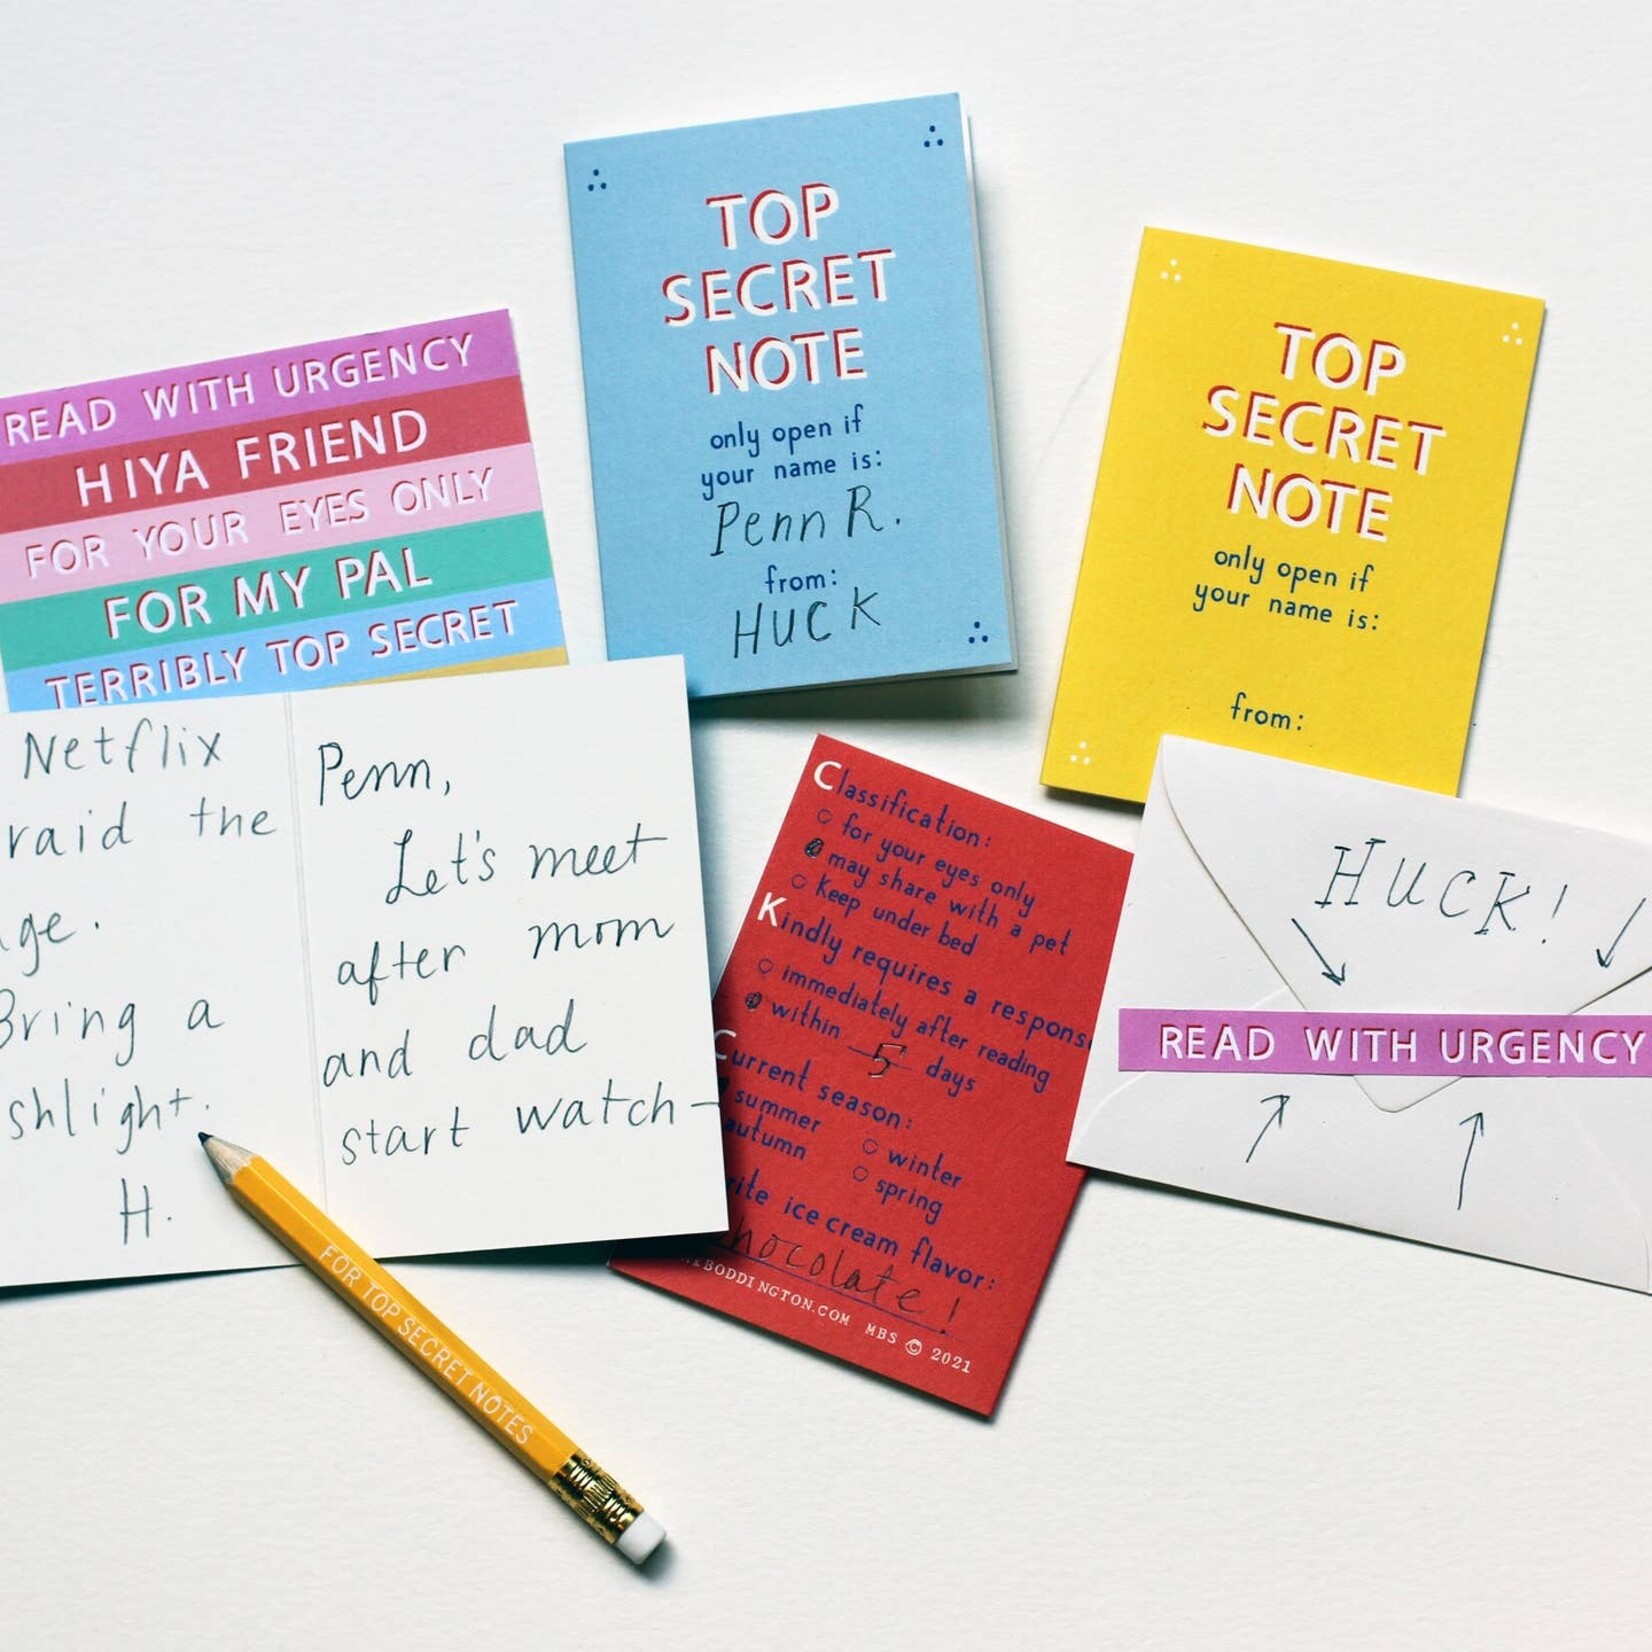 TOP
SECRET
NOTE
only open if
your name is:
Penn R.
from:
HUCK
TOP
SECRET
NOTE
only open if
your name is:
from:
READ WITH URGENCY
HIYA FRIEND
FOR YOUR EYES ONLY
FOR MY PAL
TERRIBLY TOP SECRET
Netflix
raid the
Bring a
H.
Penn,
Let's meet
after mom
and dad
start watch-
FOR TOP SECRET NOTES
Classification:
for your eyes only
may share with a pet
Keep under bed
Kindly requires a respons
immediately after reading
within 5 days
Current season:
summer
autumn
winter
spring
ice cream flavor:
hocolate!
&BODDINGTON.COM MBS © 2021
HUCK!
READ WITH URGENCY